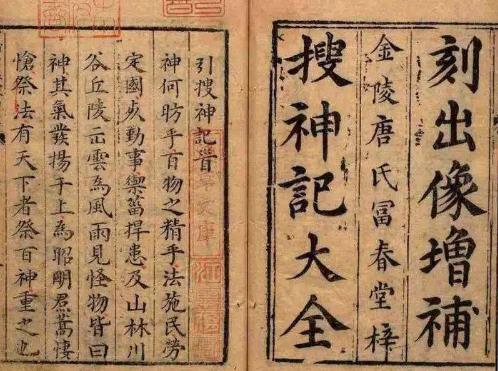 刻出像增補
金陵唐氏冨春堂梓
搜神記大全
引搜神記首
神何昉乎百物之精乎法施民勞
定國㠯勤事禦菑捍患及山林川
谷丘陵出雲為風雨見怪物皆曰
神其氣發揚于上為昭明焄蒿悽
愴祭法有天下者祭百神重之也